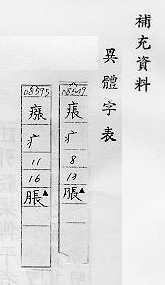 補充資料
異體字表
痮
疒
8
13
脹▲
08595
瘬
疒
11
16
脹▲